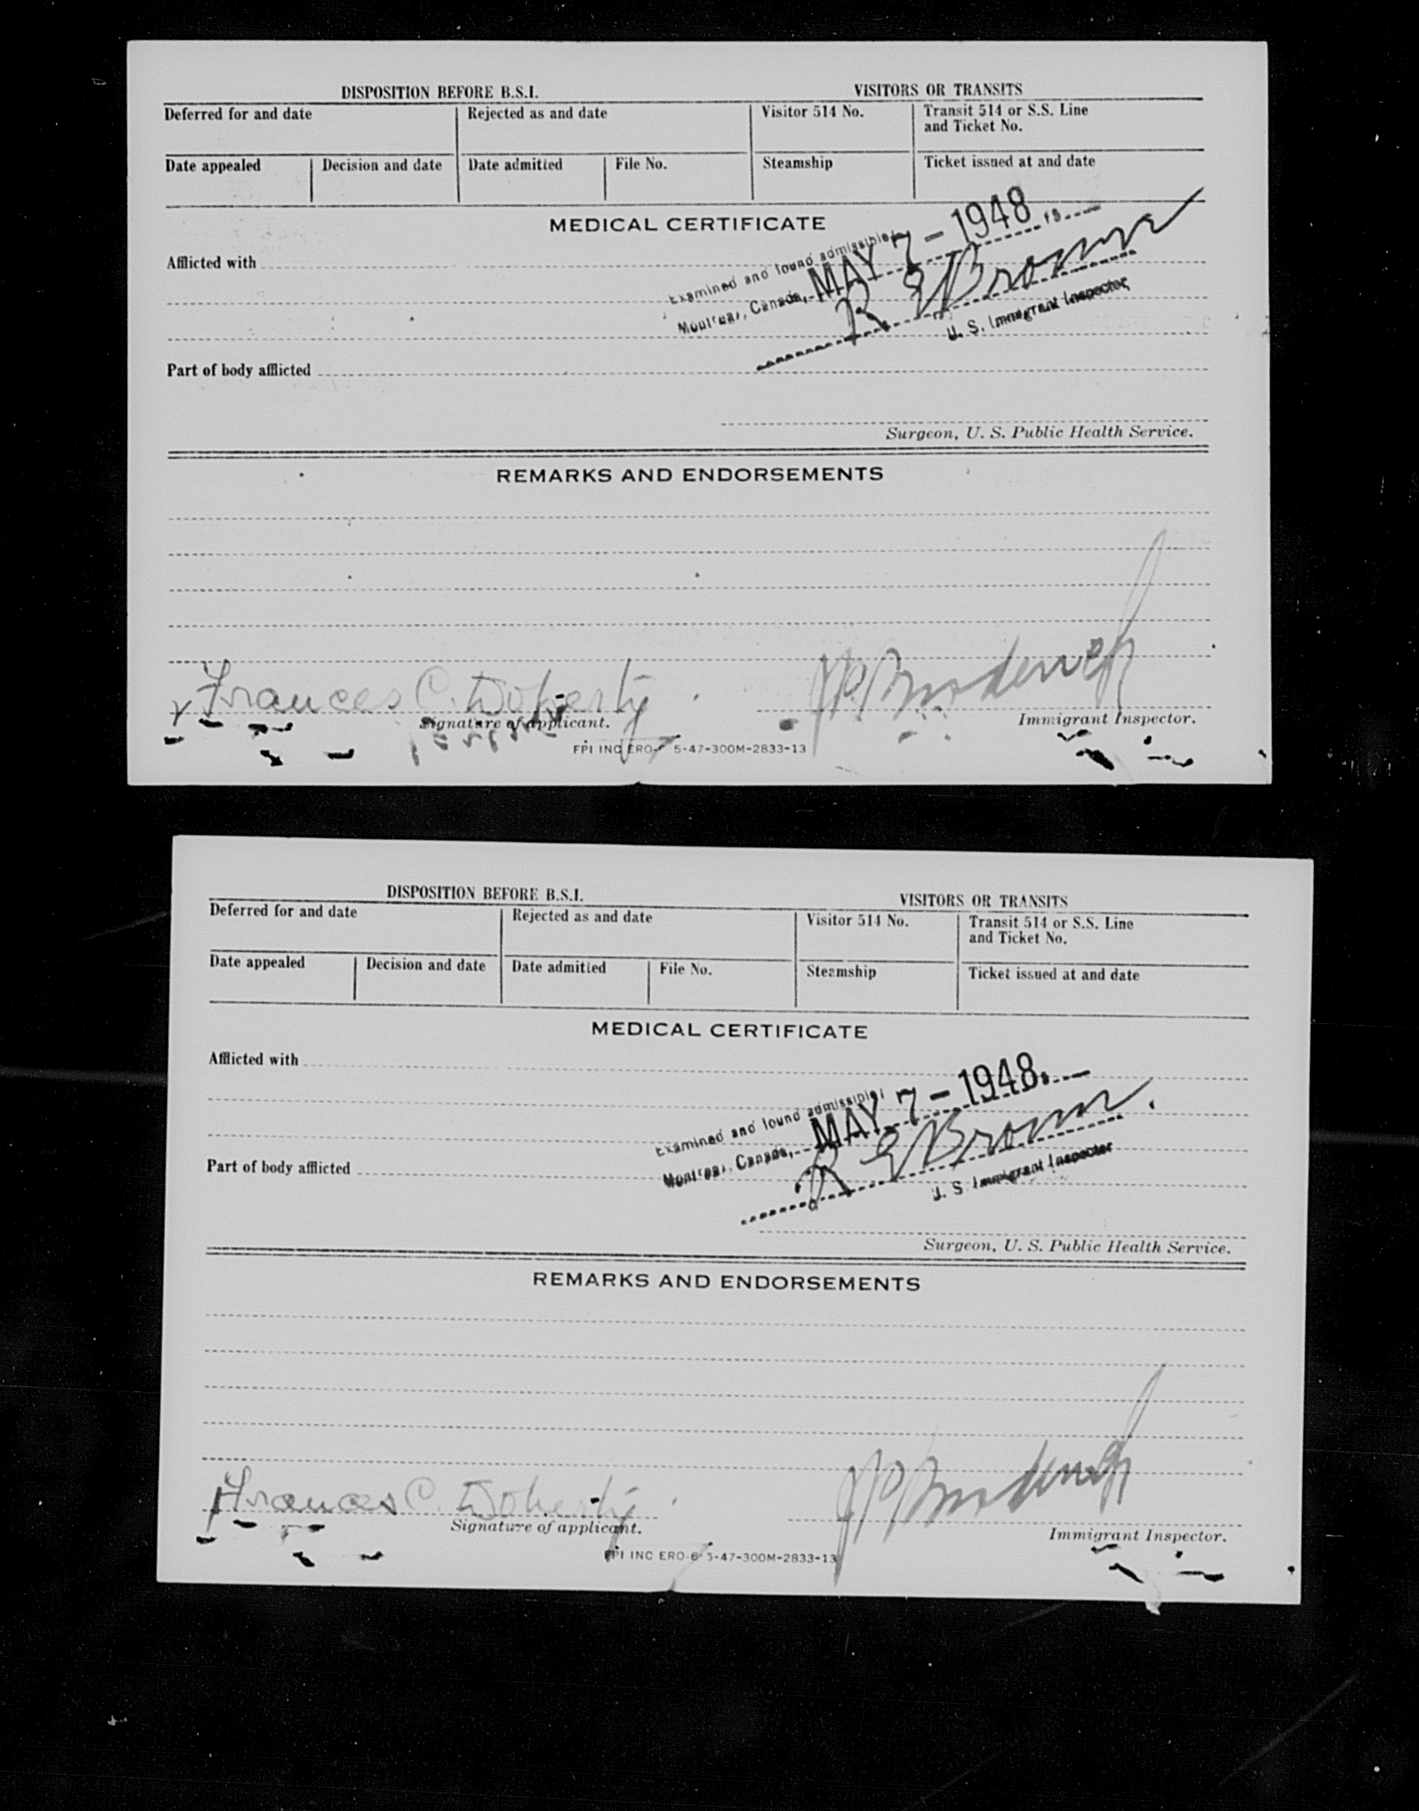 DISPOSITION BEFORE B.S.I. VISITORS OR TRANSITS
Deferred for and date Rejected as and date Visitor 514 No. Transit 514 or S.S. Line and Ticket No.
Date appealed Decision and date Date admitted File No. Steamship Ticket issued at and date
MEDICAL CERTIFICATE
Examined and found admissible
Montreal, Canada, MAY 7 - 1948 19
Afflicted with
R E Brown
U. S. Immigrant Inspector
Part of body afflicted
Surgeon, U. S. Public Health Service.
REMARKS AND ENDORSEMENTS
Frances C. Doherty
Signature of applicant. Immigrant Inspector.
FPI INC ERO- 5-47-300M-2833-13
DISPOSITION BEFORE B.S.I. VISITORS OR TRANSITS
Deferred for and date Rejected as and date Visitor 514 No. Transit 514 or S.S. Line and Ticket No.
Date appealed Decision and date Date admitted File No. Steamship Ticket issued at and date
MEDICAL CERTIFICATE
Afflicted with
Examined and found admissible
Montreal, Canada, MAY 7 - 1948
R E Brown
U. S. Immigrant Inspector
Part of body afflicted
Surgeon, U. S. Public Health Service.
REMARKS AND ENDORSEMENTS
Frances C. Doherty
Signature of applicant. Immigrant Inspector.
FPI INC ERO-6 5-47-300M-2833-13